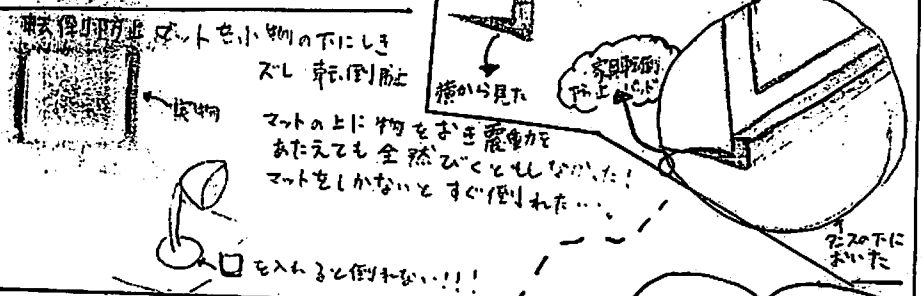 転倒防止
マットを小物の下にしき
ズレ 転倒防止
実物
マットの上に物をおき震動を
あたえても全然びくともしなかった!
マットをしかないとすぐ倒れた…。
を入れると倒れない!!!
横から見た
家具転倒
防止パッド
タンスの下に
おいた